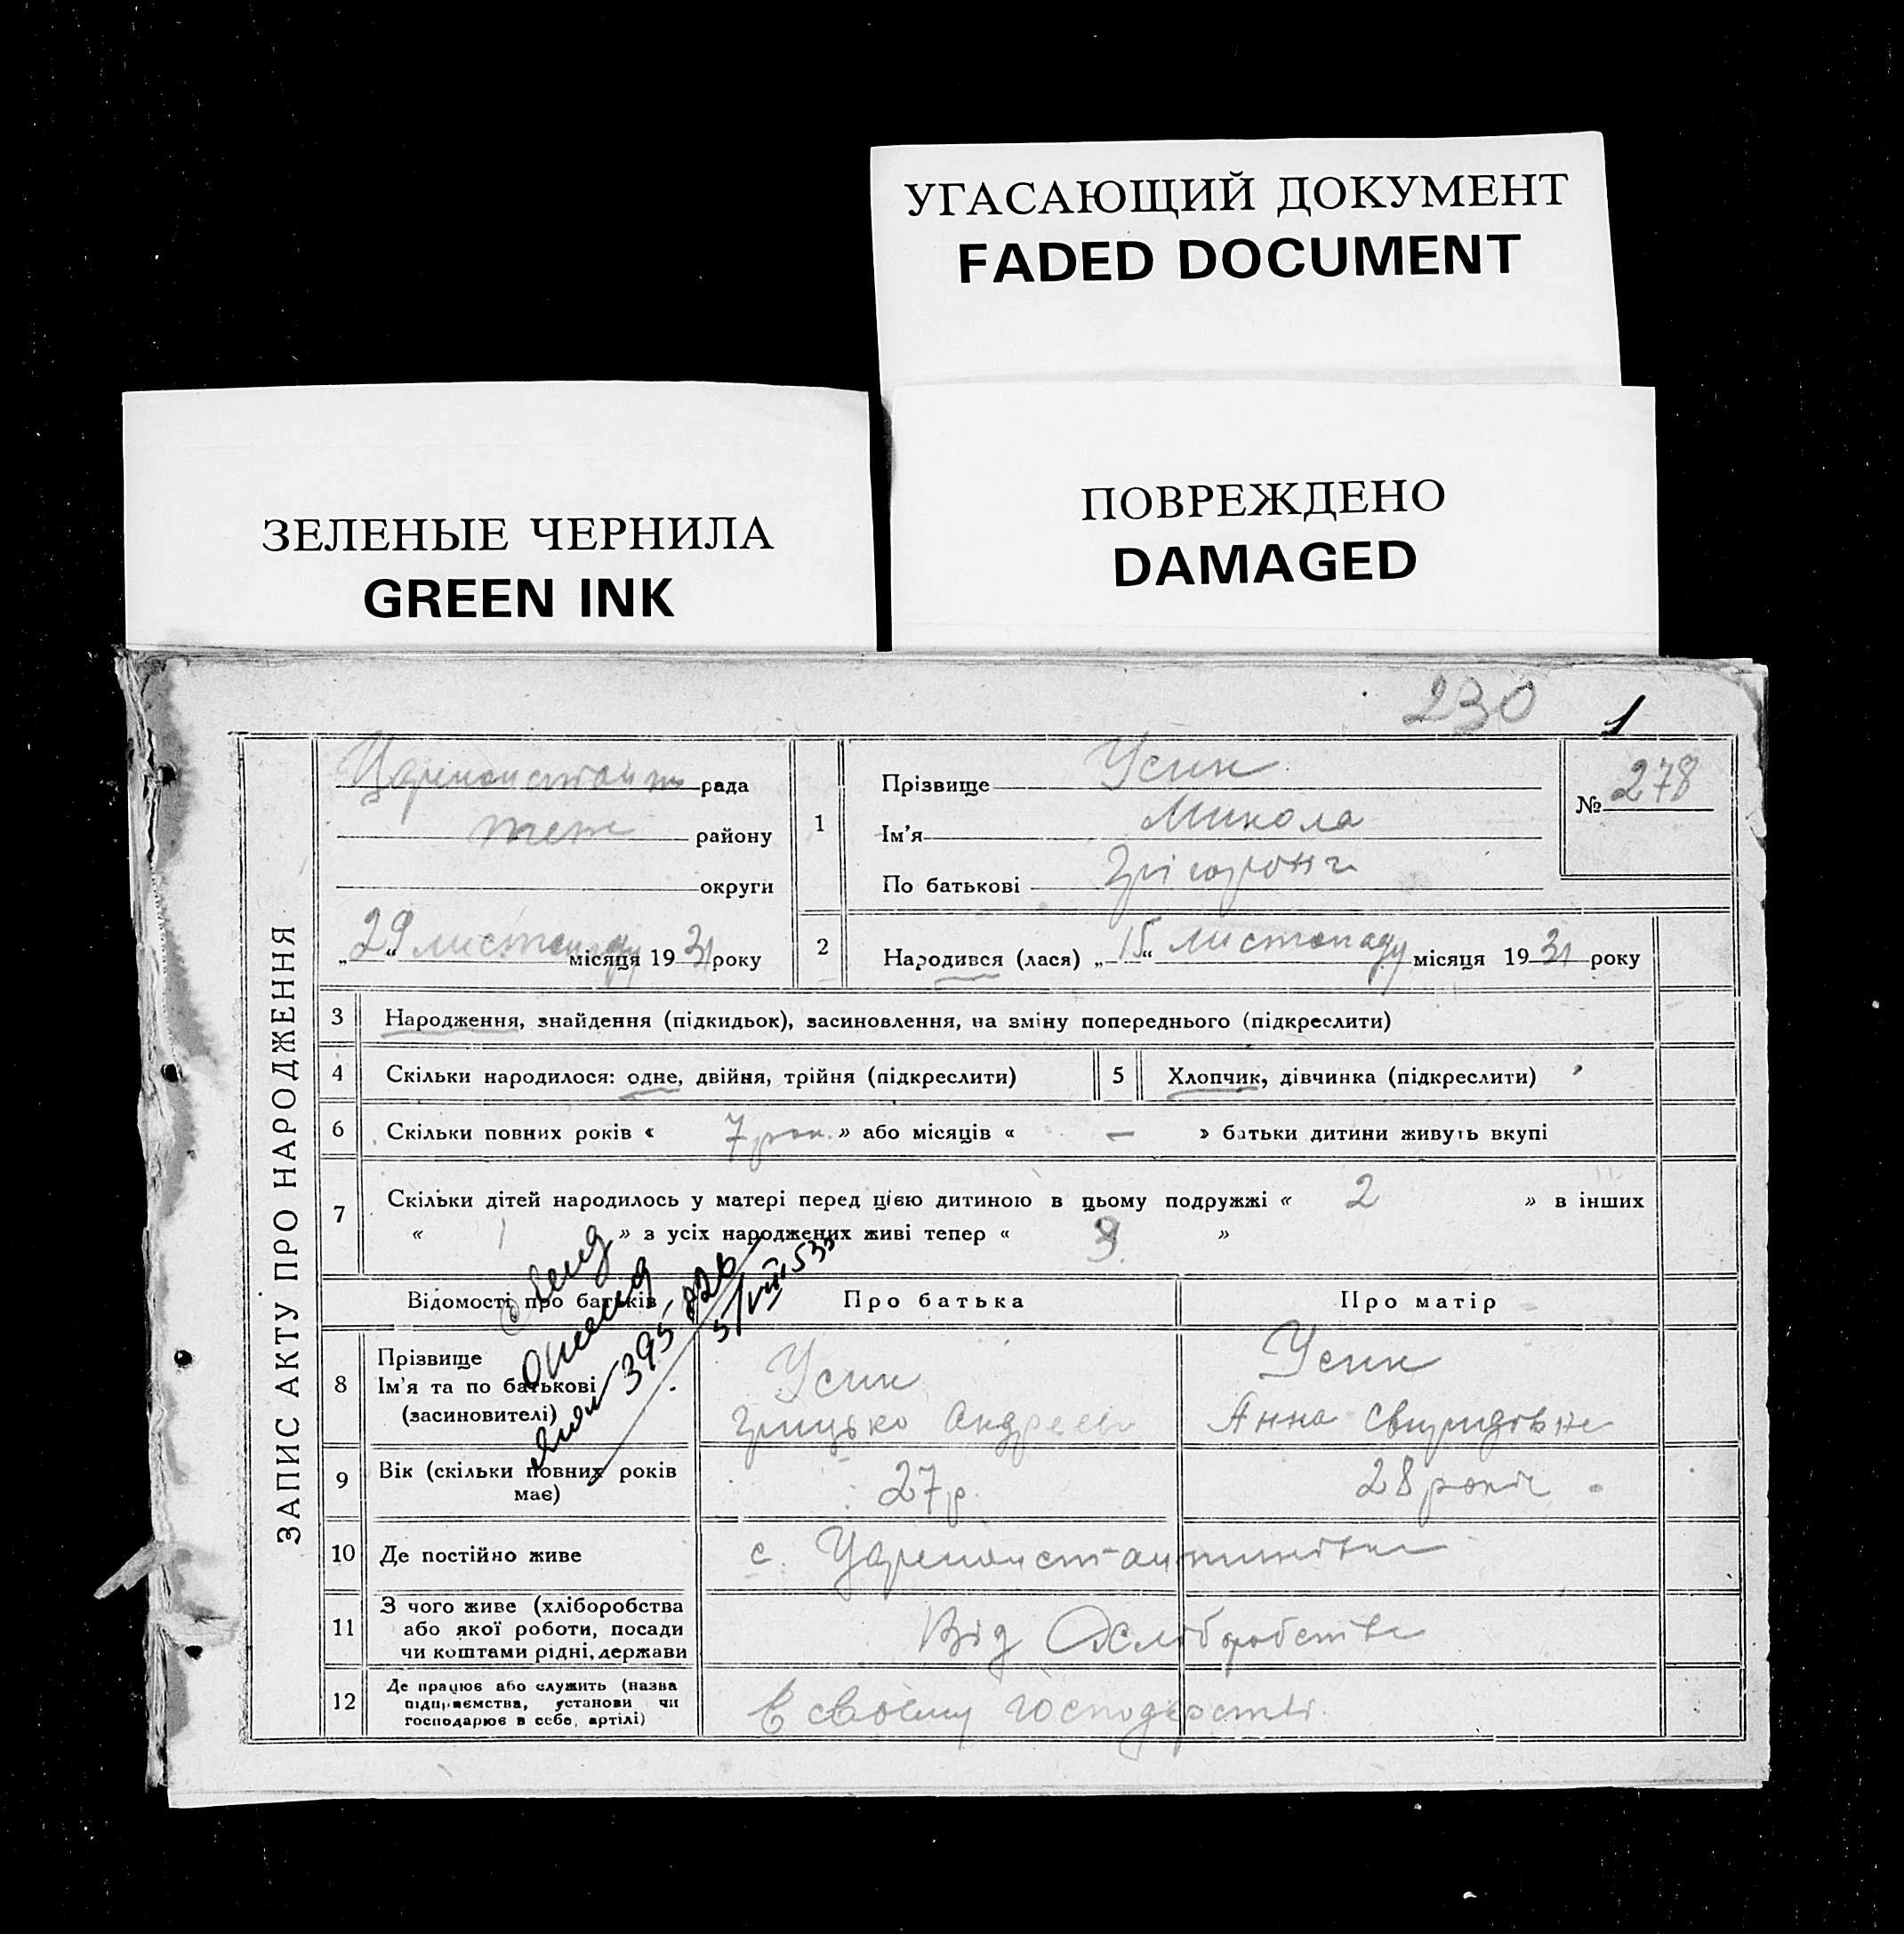 УГАСАЮЩИЙ ДОКУМЕНТ
FADED DOCUMENT
ЗЕЛЕНЫЕ ЧЕРНИЛА
GREEN INK
ПОВРЕЖДЕНО
DAMAGED
230 1
ЗАПИС АКТУ ПРО НАРОДЖЕННЯ
рада
району
округи
„29“ листопаду місяця 1931 року
1
Прізвище Усик
Ім'я Микола
По батькові
№ 278
2 Народився (лася) „15“ листопаду місяця 1931 року
3 Народження, знайдення (підкидьок), засиновлення, на зміну попереднього (підкреслити)
4 Скільки народилося: одне, двійня, трійня (підкреслити)
5 Хлопчик, дівчинка (підкреслити)
6 Скільки повних років « 7 рок. » або місяців « — » батьки дитини живуть вкупі
7 Скільки дітей народилось у матері перед цією дитиною в цьому подружжі « 2 » в інших
« 1 » з усіх народжених живі тепер « 3 »
Відомості про батьків Про батька Про матір
8 Прізвище
Ім'я та по батькові
(засиновителі)
Усик
Грицько
Усик
Анна Свиридівна
9 Вік (скільки повних років
має)
27 р. 28 років
10 Де постійно живе с. Цареконстантинівка
11 З чого живе (хліборобства
або якої роботи, посади
чи коштами рідні, держави
Від
12 Де працює або служить (назва
підприємства, установи чи
господарює в себе, артілі)
В своєму господарстві